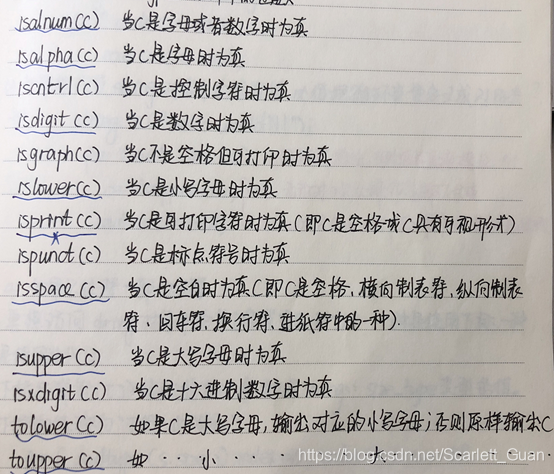 isalnum(c) 当C是字母或者数字时为真
isalpha(c) 当C是字母时为真
iscntrl(c) 当C是控制字符时为真
isdigit(c) 当C是数字时为真
isgraph(c) 当C不是空格但可打印时为真
islower(c) 当C是小写字母时为真
isprint(c) 当C是可打印字符时为真(即C是空格或C具有可视形式)
ispunct(c) 当C是标点符号时为真
isspace(c) 当C是空白时为真(即C是空格、横向制表符、纵向制表
符、回车符、换行符、进纸符中的一种).
isupper(c) 当C是大写字母时为真
isxdigit(c) 当C是十六进制数字时为真
tolower(c) 如果C是大写字母,输出对应的小写字母;否则原样输出C
toupper(c) 如 · · 小 · · · · 大 · ·
https://blog.csdn.net/Scarlett_Guan